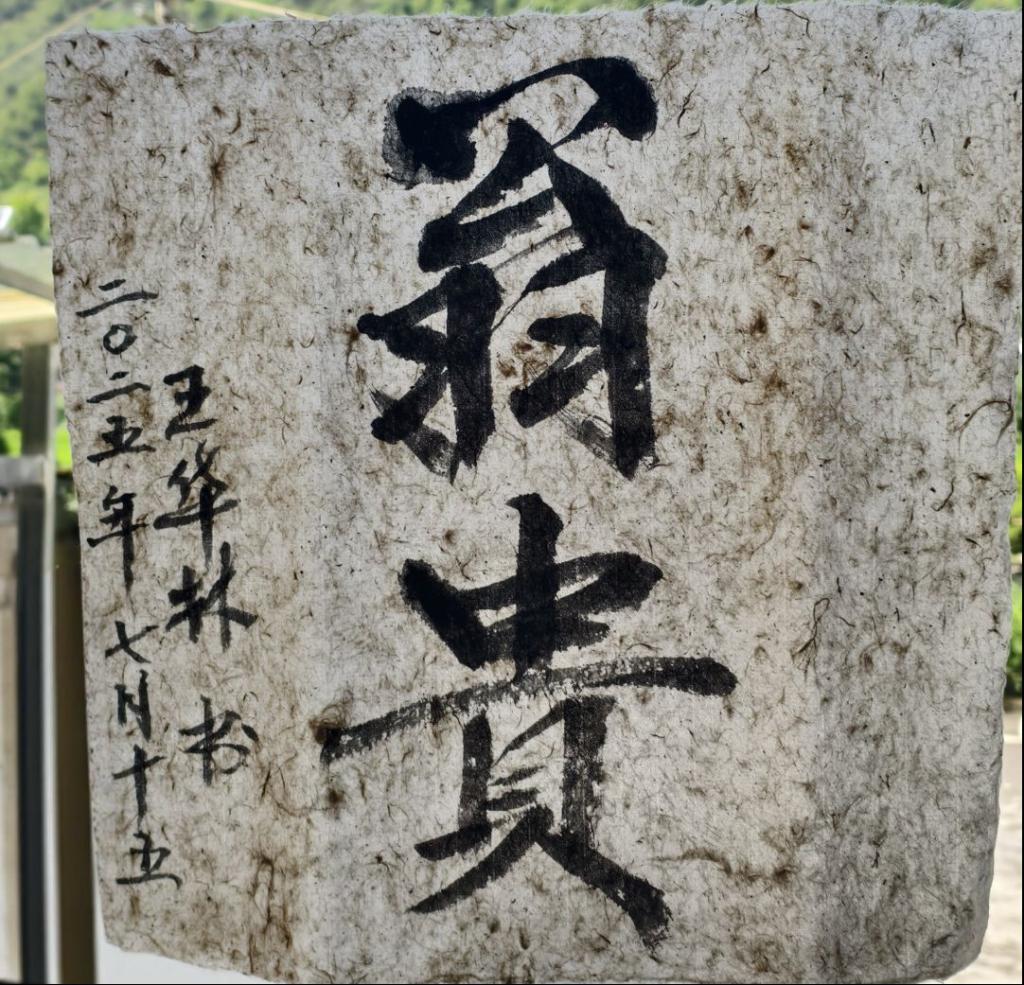 翁貴
王华林书
二〇二五年七月十五